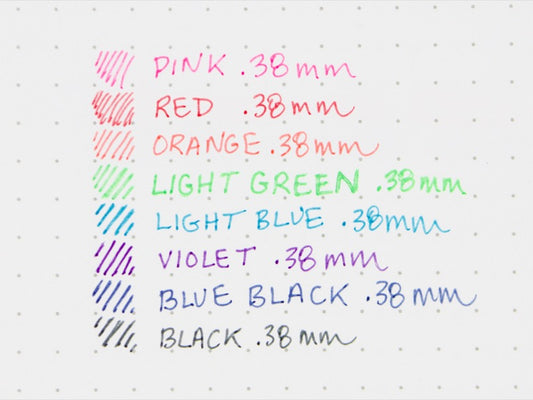 PINK .38mm
RED .38mm
ORANGE .38mm
LIGHT GREEN .38mm
LIGHT BLUE .38mm
VIOLET .38mm
BLUE BLACK .38mm
BLACK .38mm